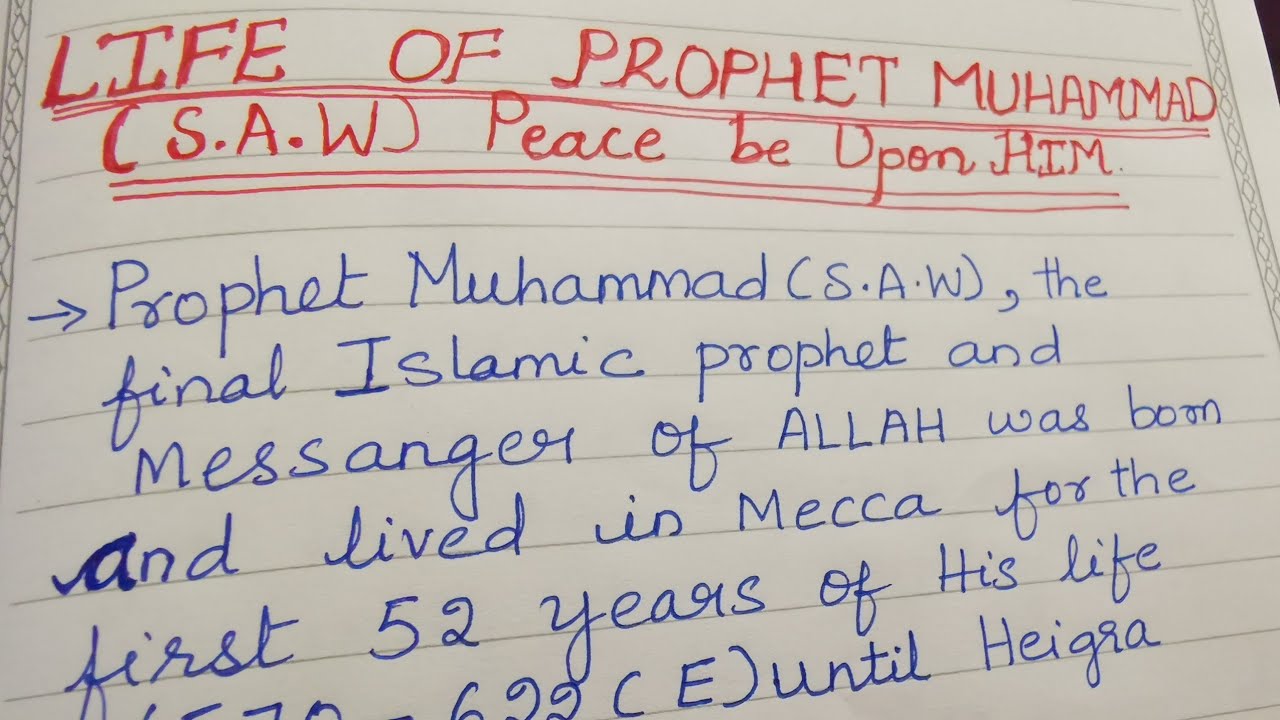 LIFE OF PROPHET MUHAMMAD
(S.A.W) Peace be Upon HIM.
→ Prophet Muhammad (S.A.W), the
final Islamic prophet and
Messanger of ALLAH was born
and lived in Mecca for the
first 52 years of His life
(570 - 622 C E) until Heigra